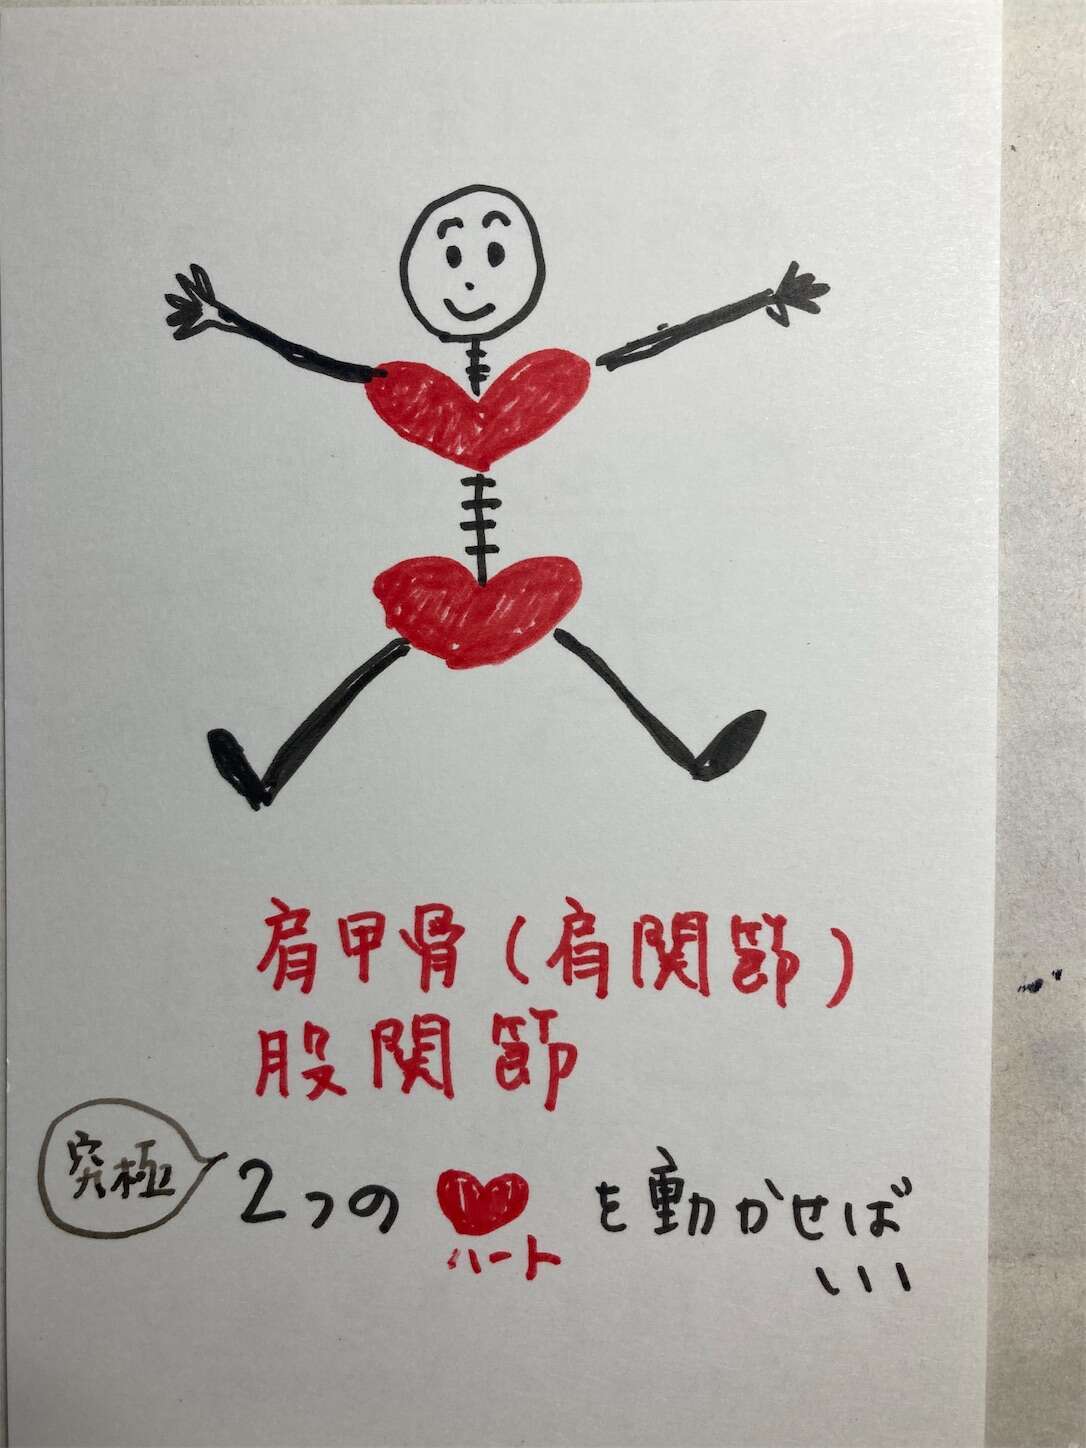 肩甲骨(肩関節)
股関節
究極
2つの ♥ を動かせば
ハート
いい